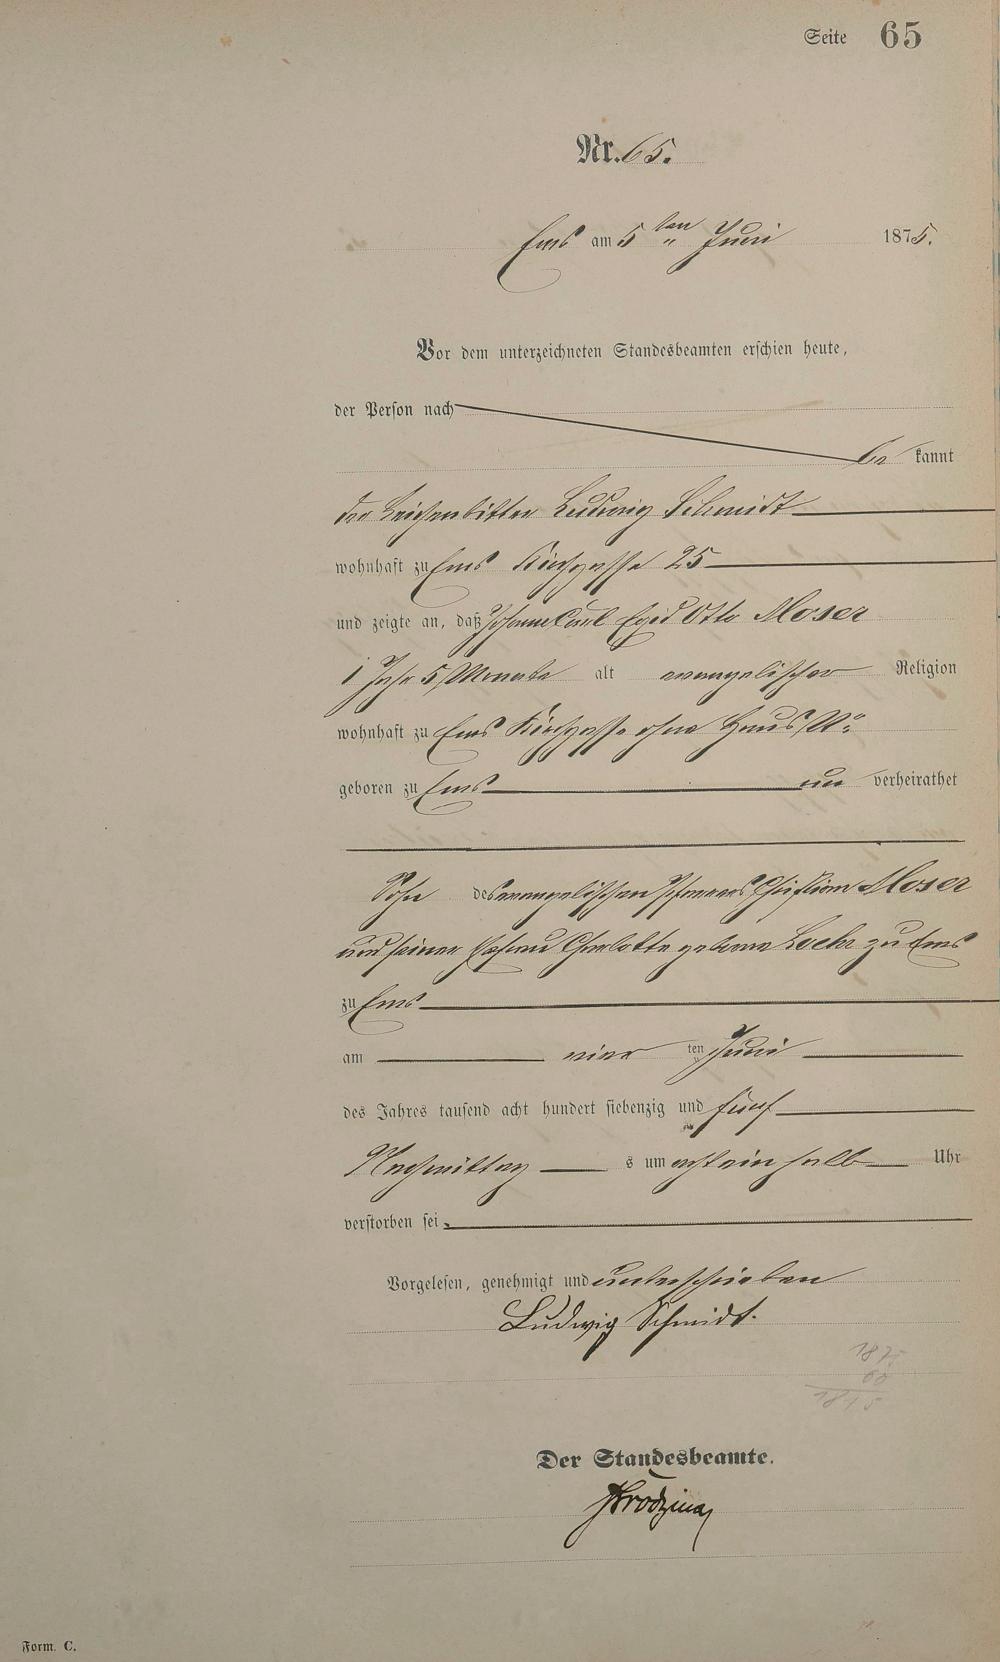 Seite 65
Nr. 65.
Ems am 5 ten Juni 1875.
Vor dem unterzeichneten Standesbeamten erschien heute,
der Person nach
be kannt
der Leichenbitter Ludwig Schmidt
wohnhaft zu Ems Kirchgasse 25
und zeigte an, daß Johann Carl Egid Otto Moser
1 Jahr 5 Monate alt evangelischer Religion
wohnhaft zu Ems Kirchgasse ohne Haus No:
geboren zu Ems un verheirathet
Sohn des evangelischen Christian Moser
und seiner Ehefrau Charlotte geborne Loehr zu Ems
zu Ems
am vier ten Juni
des Jahres tausend acht hundert siebenzig und fünf
Nachmittag s um achteinhalb Uhr
verstorben sei.
Vorgelesen, genehmigt und unterschrieben
Ludwig Schmidt.
1875
60
1815
Der Standesbeamte.
Form. C.